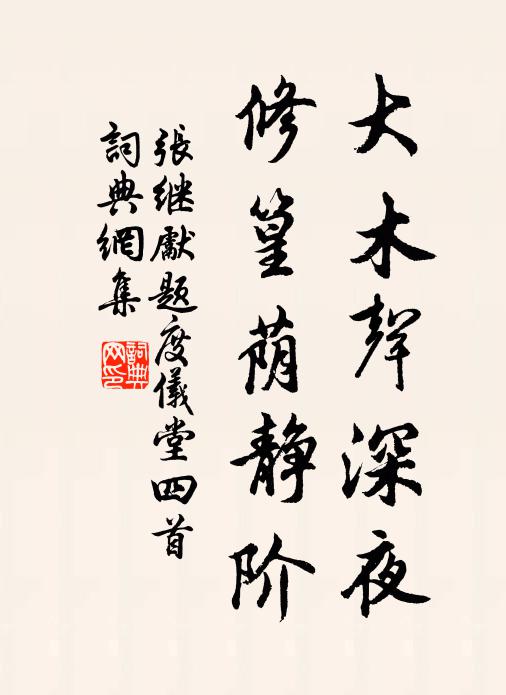 大木声深夜
修篁荫静阶
張继獻题度儀堂四首
詞典網集
詞典网印